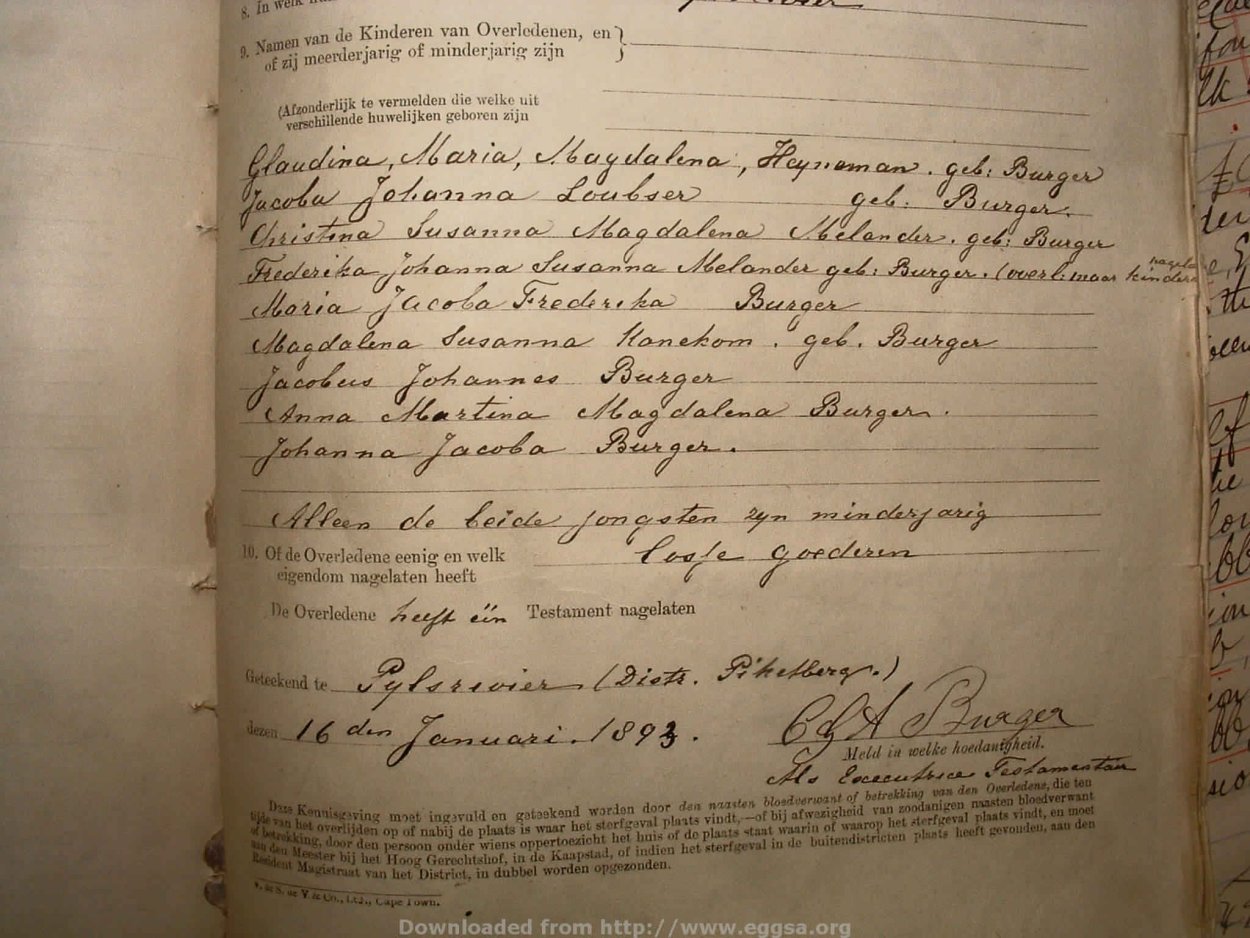 8. In welk
9. Namen van de Kinderen van Overledenen, en
of zij meerderjarig of minderjarig zijn
(Afzonderlijk te vermelden die welke uit
verschillende huwelijken geboren zijn
Glaudina, Maria, Magdalena, Heyneman. geb: Burger
Jacoba Johanna Loubser geb. Burger.
Christina Susanna Magdalena Melander. geb: Burger
Frederika Johanna Susanna Melander geb: Burger. (overl. maar kinders
Maria Jacoba Frederika Burger
Magdalena Susanna Hanekom. geb. Burger
Jacobus Johannes Burger
Anna Martina Magdalena Burger.
Johanna Jacoba Burger.
Alleen de beide jongsten zyn minderjarig
10. Of de Overledene eenig en welk
eigendom nagelaten heeft
losse goederen
De Overledene heeft één Testament nagelaten
Geteekend te Pylsrivier (Distr. Piketberg.)
dezen 16 den Januari. 1893.
Burger
Meld in welke hoedanigheid.
Als Executrice Testamentair
Deze Kennisgeving moet ingevuld en geteekend worden door den naasten bloedverwant of betrekking van den Overledene, die ten
tijde van het overlijden op of nabij de plaats is waar het sterfgeval plaats vindt,—of bij afwezigheid van zoodanigen naasten bloedverwant
of betrekking, door den persoon onder wiens oppertoezicht het huis of de plaats staat waarin of waarop het sterfgeval plaats vindt, en moet
aan den Meester bij het Hoog Gerechtshof, in de Kaapstad, of indien het sterfgeval in de buitendistricten plaats heeft gevonden, aan den
Resident Magistraat van het District, in dubbel worden opgezonden.
V. de S. de V. & Co., Ltd., Cape Town.
Downloaded from http://www.eggsa.org